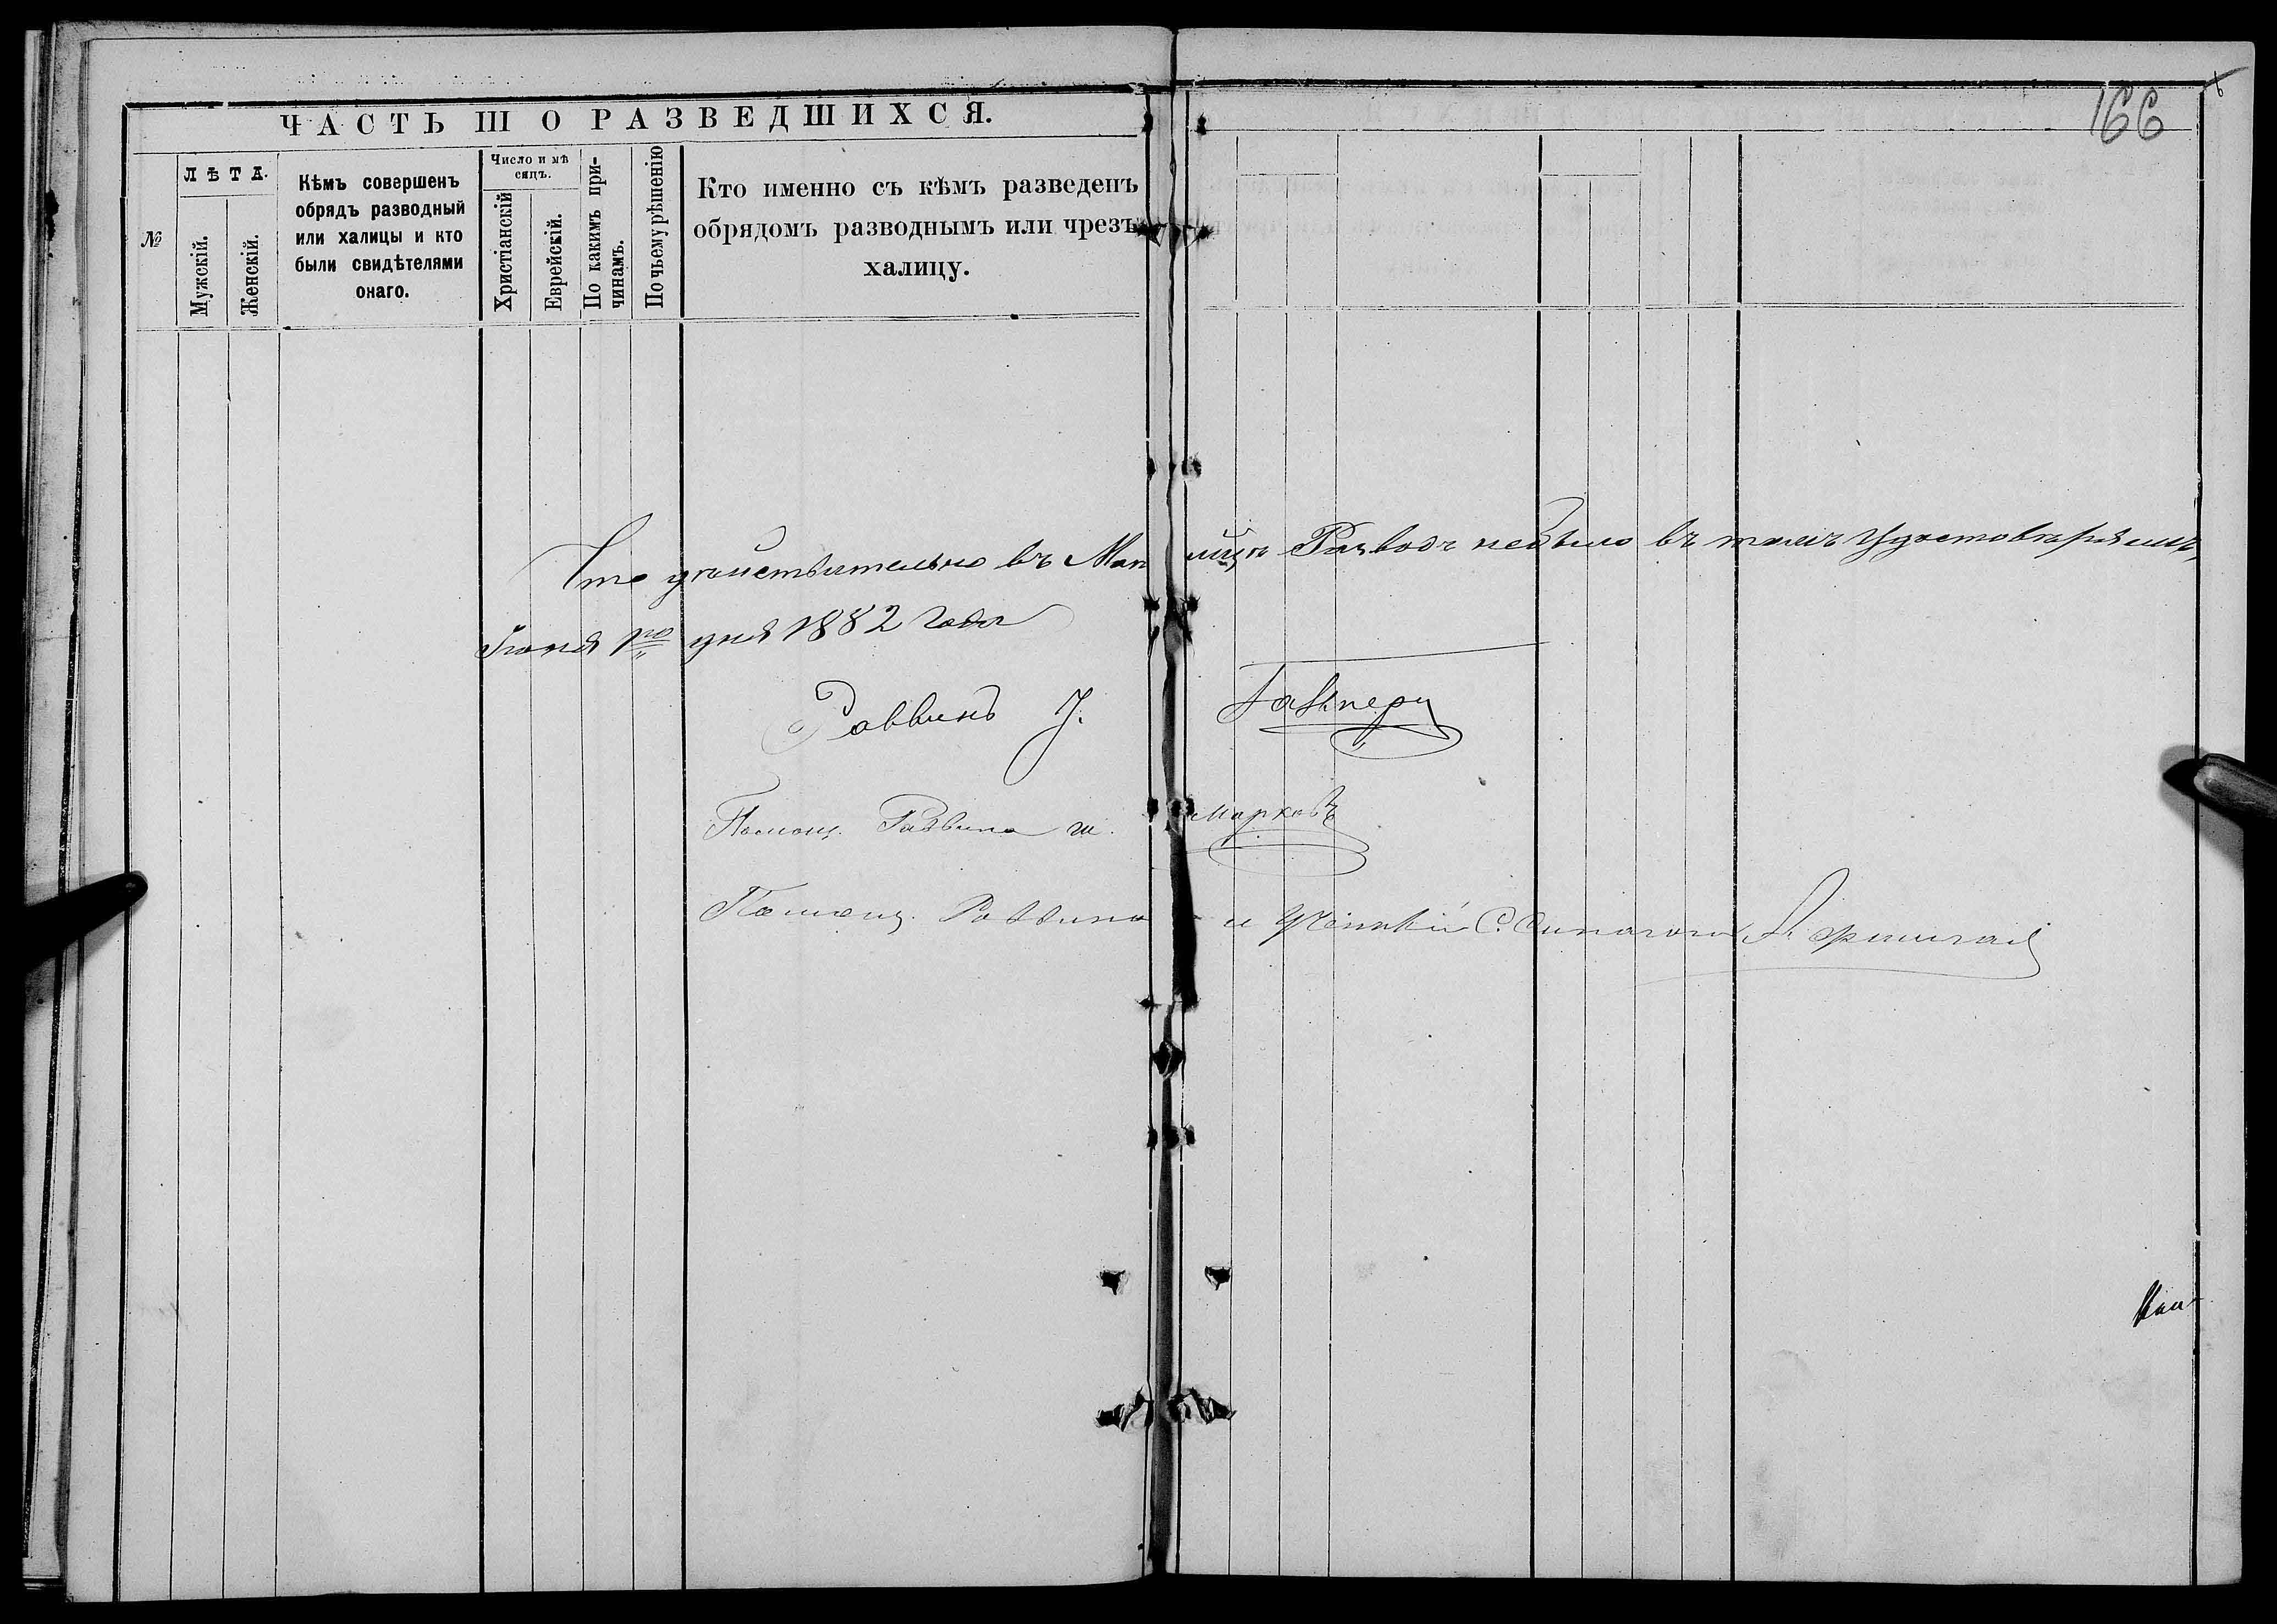 ЧАСТЬ III О РАЗВЕДШИХСЯ.
166
№
ЛѢТА.
Мужскій.
Женскій.
Кѣмъ совершенъ
обрядъ разводный
или халицы и кто
были свидѣтелями
онаго.
Число и мѣ
сяцъ.
Христіанскій
Еврейскій.
По какимъ при-
чинамъ.
По чьему рѣшенію
Кто именно съ кѣмъ разведенъ
обрядомъ разводнымъ или чрезъ
халицу.
Что дѣйствительно въ Разводъ небыло въ томъ Удостовѣряемъ,
дня 1882 года
Раввинъ J.
Помощ. Раввина ш. Марковъ
Помощ. Раввина и